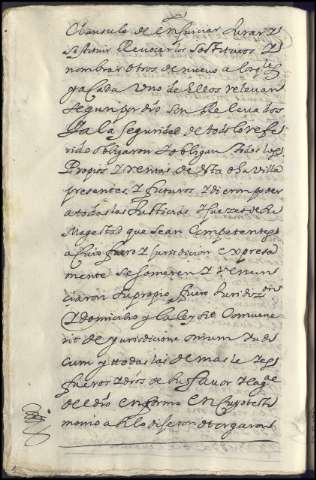 Clausula de enjuiciar Jurar y
sostituir Revocar los sostitutos y
nombrar otros de nuevo a los q̃les
y a cada uno de ellos relevan
segun por dro son Relevados
y a la seguridad de todo lo refe
rido obligaron e obligan todos los
Propios y rentas de esta dha villa
presentes y futuros y dieron poder
a todas las Justicias y Juezes de su
Magestad que sean Competentes
a cuio fuero y Jurisdicion expresa
mente se someten y renun
ciaron su propio fuero Jurisdizon
y domicilio y la ley sit Convene
rit de Jurisdicione omnium Judi
cum y todas las demas leyes
fueros y dros de su favor y la gl
del dro en forma en cuyo testi
monio asi lo dijeron otorgaron